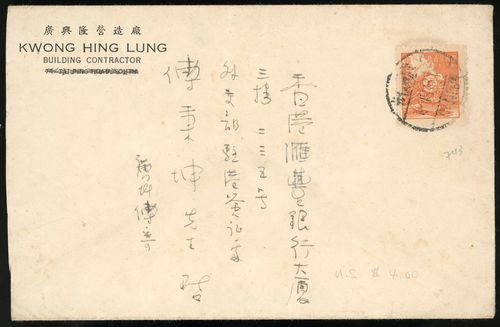 廣興隆營造廠
KWONG HING LUNG
BUILDING CONTRACTOR
香港滙豐銀行大廈
三樓 二三五号
外交部駐港簽証處
傅秉坤先生 啓
傅寄
743
U.S $ 4.00